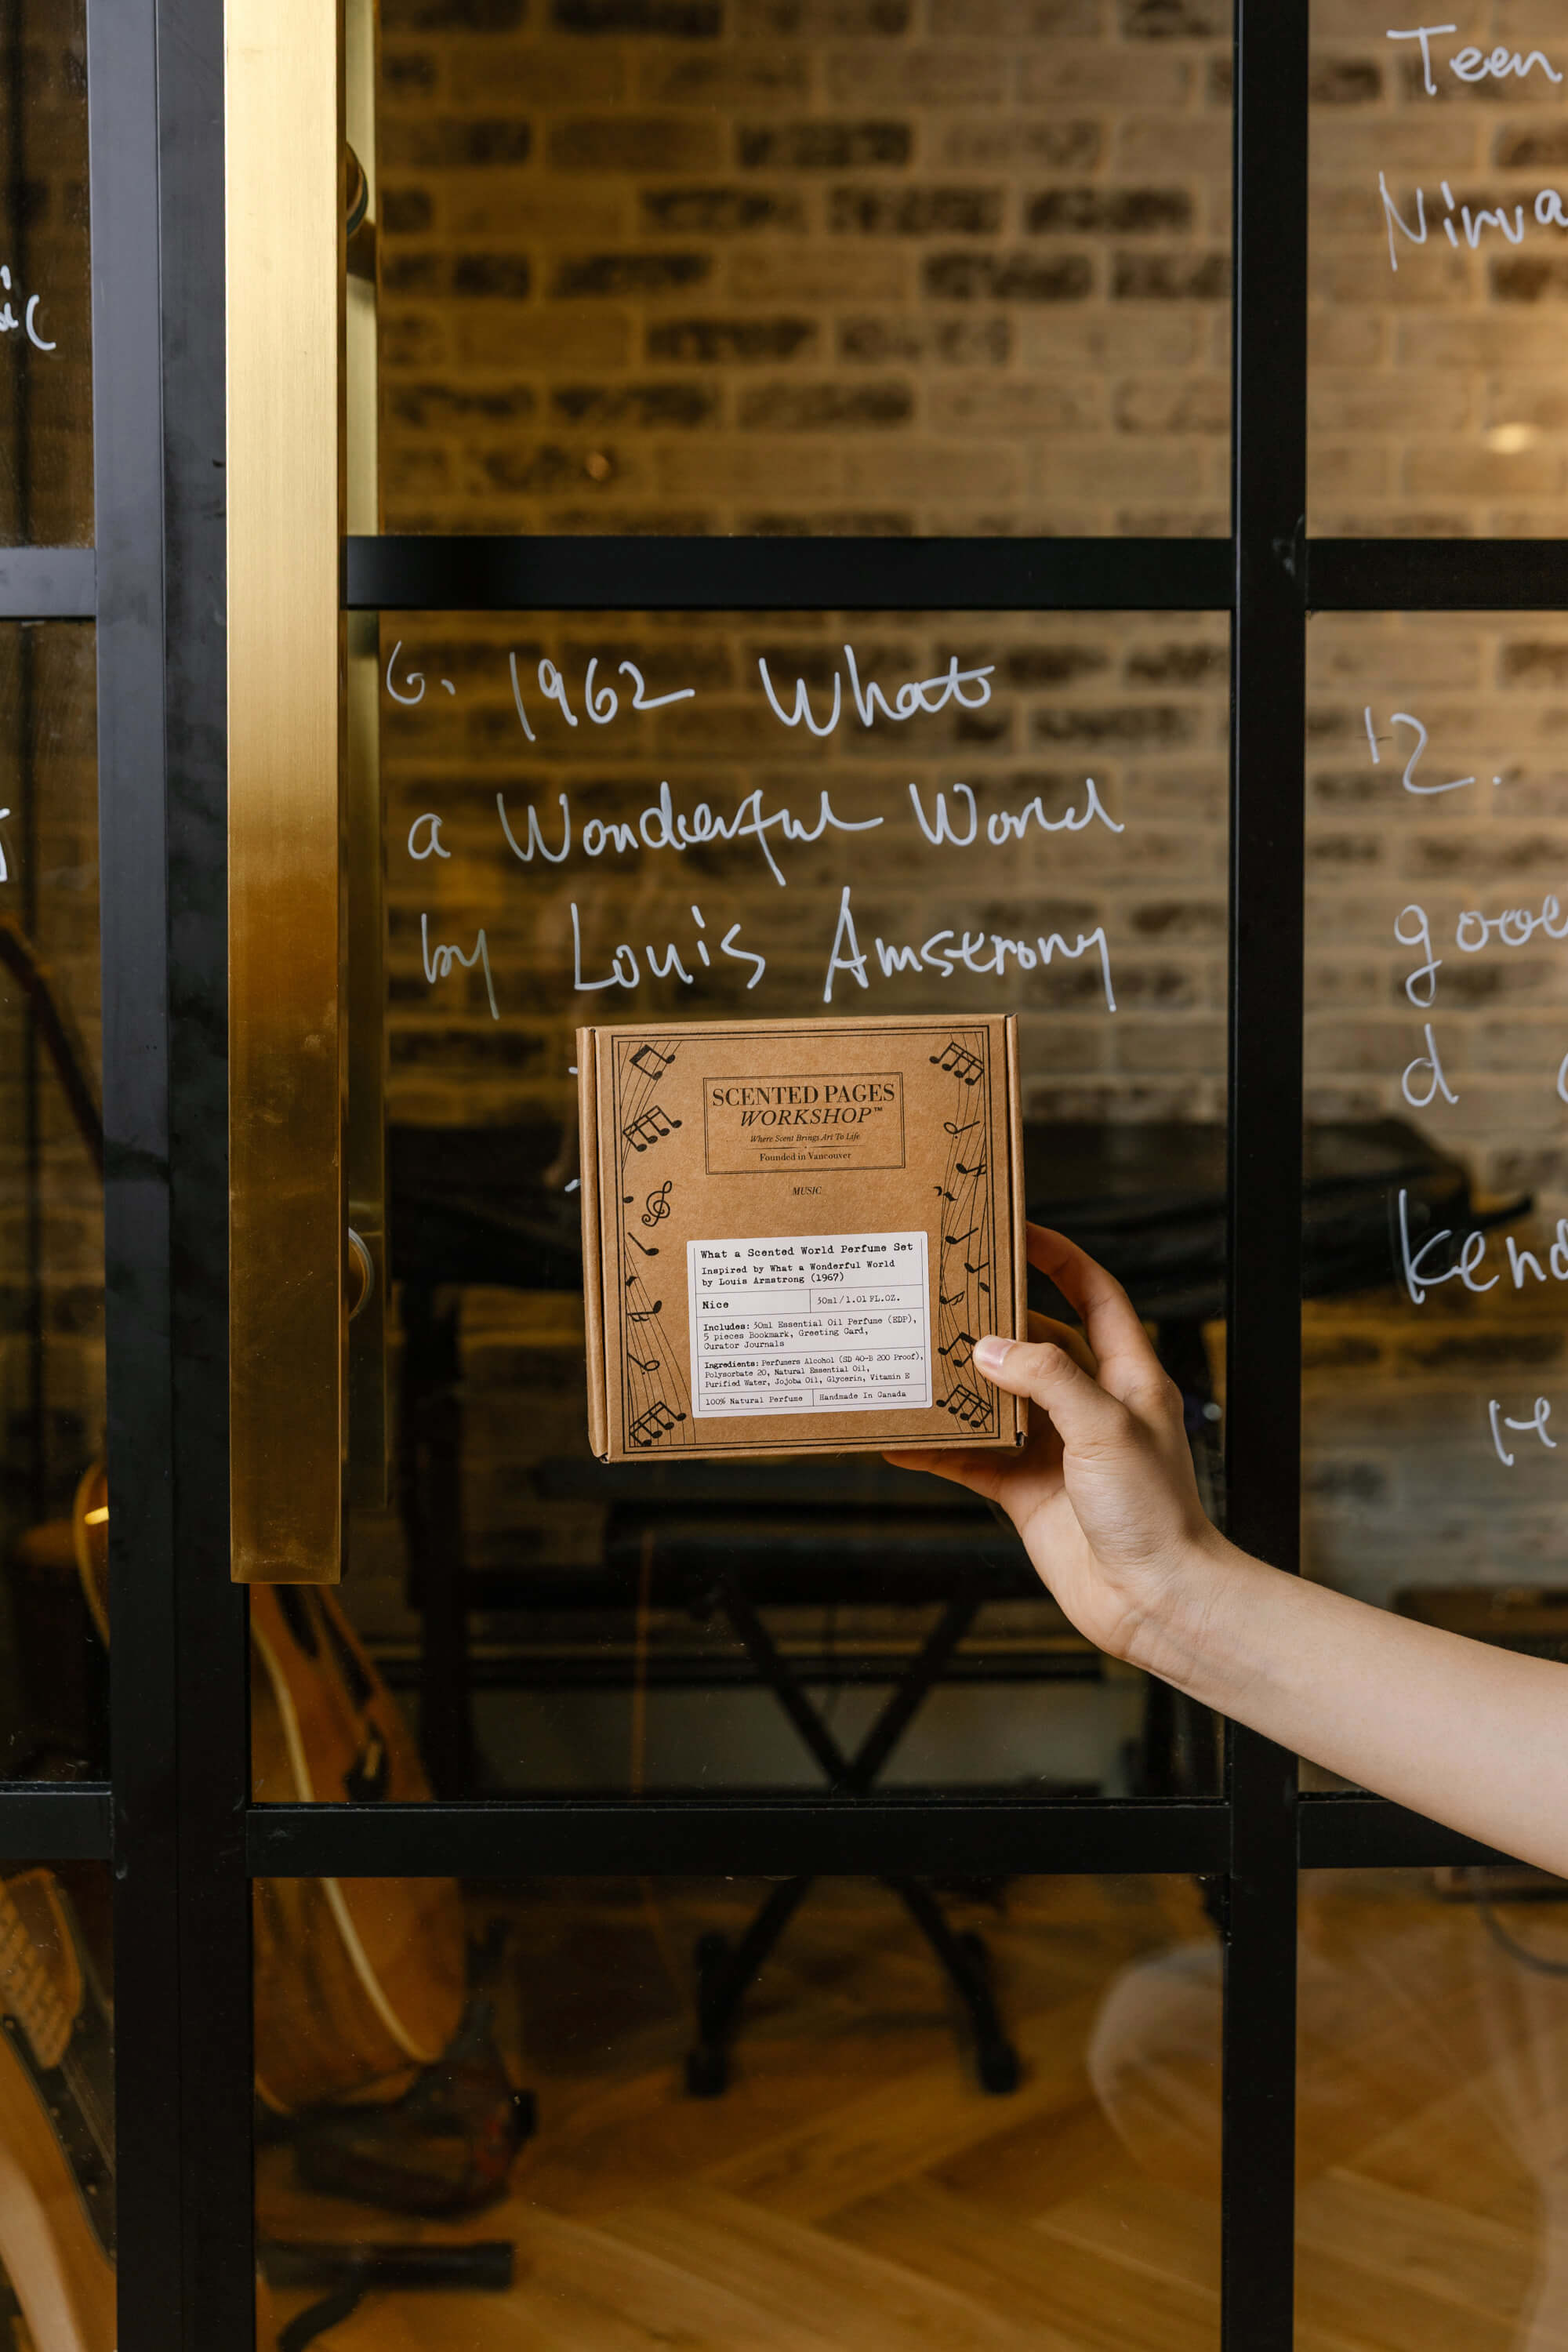 Teen
Nirva
6. 1962 What
a Wonderful World
by Louis Amstrong
12.
good
d
Kend
SCENTED PAGES
WORKSHOP™
Where Scent Brings Art To Life
Founded in Vancouver
MUSIC
What a Scented World Perfume Set
Inspired by What a Wonderful World
by Louis Armstrong (1967)
Nice
30ml/1.01 FL.OZ.
Includes: 30ml Essential Oil Perfume (EDP),
5 pieces Bookmark, Greeting Card,
Curator Journals
Ingredients: Perfumers Alcohol (SD 40-B 200 Proof),
Polysorbate 20, Natural Essential Oil,
Purified Water, Jojoba Oil, Glycerin, Vitamin E
100% Natural Perfume
Handmade In Canada